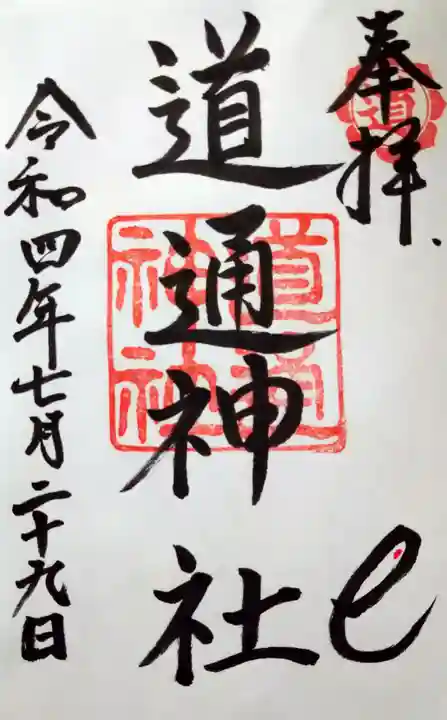 奉拝
道通神社
道通神社
令和四年七月二十九日